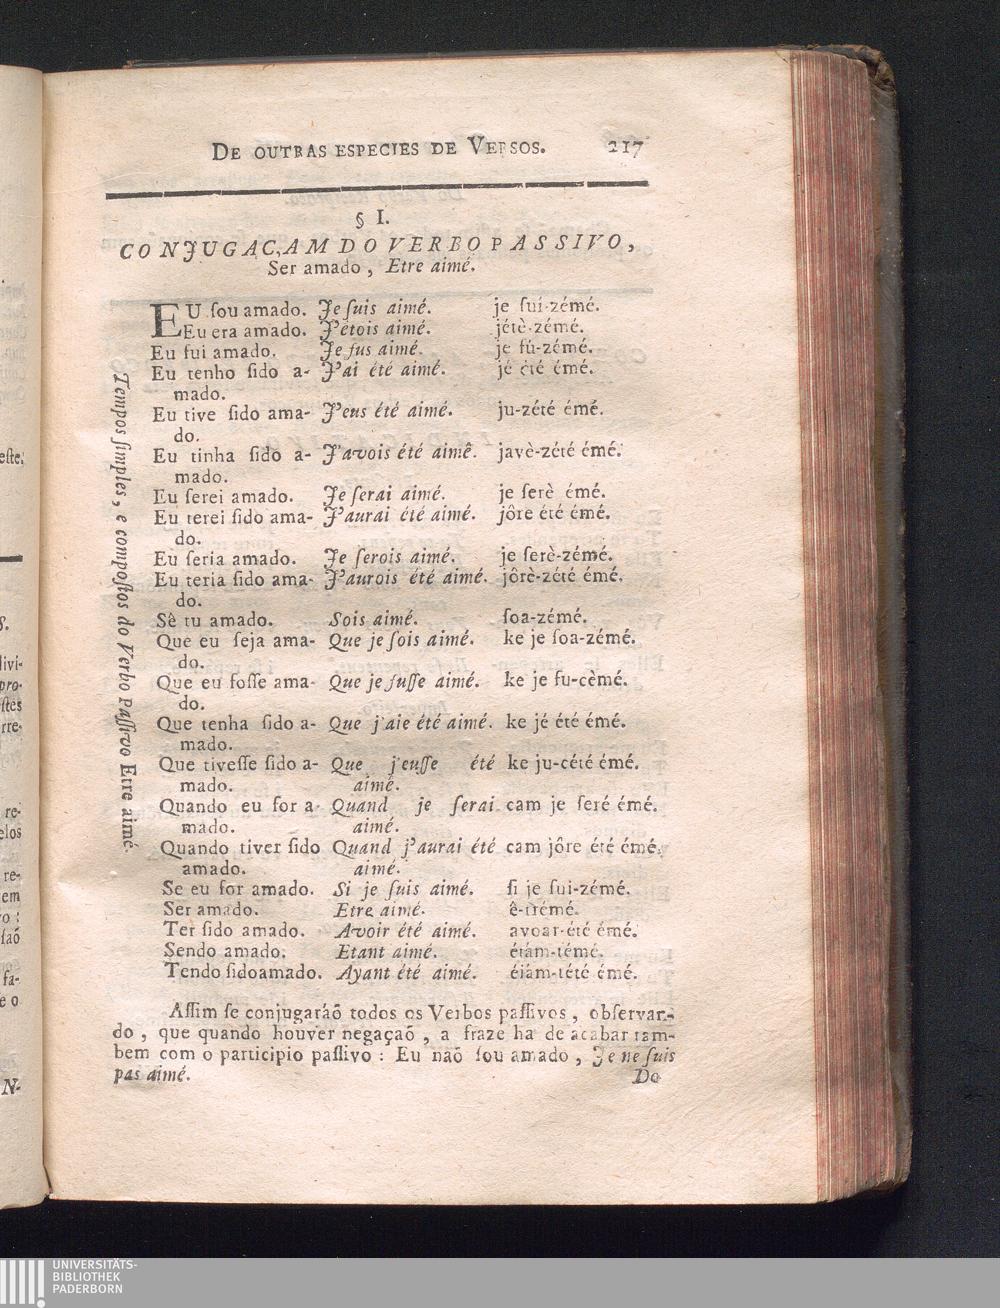 DE OUTRAS ESPECIES DE VERSOS. 217
§ I.
CONJUGAC,AM DO VERBO PASSIVO,
Ser amado, Etre aimé.
EU ſou amado. Je ſuis aimé. je ſuí-zémé.
Eu era amado. J'étois aimé. jétè-zémé.
Eu fui amado. Je fus aimé. je fú-zémé.
Eu tenho ſido a- J'ai été aimé. jé été émé.
mado.
Eu tive ſido ama- J'eus été aimé. ju-zété émé.
do.
Eu tinha ſido a- J'avois été aimê. javè-zété émé.
mado.
Eu ſerei amado. Je ſerai aimé. je ſerè émé.
Eu terei ſido ama- J'aurai été aimé. jôre été émé.
do.
Eu ſeria amado. Je ſerois aimé. je ſerè-zémé.
Eu teria ſido ama- J'aurois été aimé. jôrè-zété émé.
do.
Sê tu amado. Sois aimé. ſoa-zémé.
Que eu ſeja ama- Que je ſois aimé. ke je ſoa-zémé.
do.
Que eu foſſe ama- Que je fuſſe aimé. ke je fu-cèmé.
do.
Que tenha ſido a- Que j'aie été aimé. ke jé été émé.
mado.
Que tiveſſe ſido a- Que j'euſſe été ke ju-cété émé.
mado. aimé.
Quando eu for a- Quand je ſerai cam je ſeré émé.
mado. aimé.
Quando tiver ſido Quand j'aurai été cam jôre été émé.
amado. aimé.
Se eu for amado. Si je ſuis aimé. ſi je ſui-zémé.
Ser amado. Etre aimé. ê-trémé.
Ter ſido amado. Avoir été aimé. avoar-été émé.
Sendo amado. Etant aimé. étám-témé.
Tendo ſidoamado. Ayant été aimé. éiám-tété émé.
Tempos ſimples, e compoſtos do Verbo Paſſivo Etre aimé.
Aſſim ſe conjugaráõ todos os Verbos paſſivos, obſervan-
do, que quando houver negaçaõ, a fraze ha de acabar tam-
bem com o participio paſſivo: Eu naõ ſou amado, Je ne ſuis
pas aimé. Do
eſte.
S.
livi-
pro-
ſtes
rre-
re-
elos
re-
em
ro:
ſaõ
fa-
e o
N-
UNIVERSITÄTS-
BIBLIOTHEK
PADERBORN